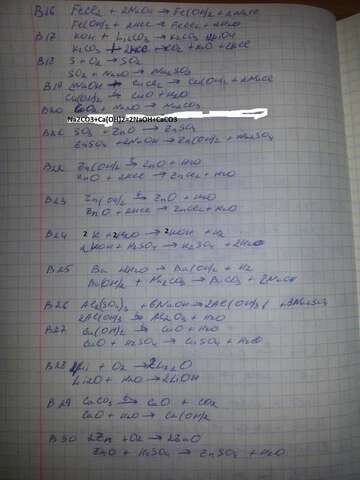 B16 FeCl2 + 2NaOH → Fe(OH)2 + 2NaCl
Fe(OH)2 + 2HCl → FeCl2 + 2H2O
B17 KOH + Li2CO3 → K2CO3
K2CO3 + 2HCl → CO2 + H2O + 2KCl
B18 S + O2 → SO2
SO2 + Na2O → Na2SO3
B19 2NaOH + CuCl2 → Cu(OH)2 + 2NaCl
Cu(OH)2 → CuO + H2O
B20 CO2 + Na2O → Na2CO3
Na2CO3+Ca(OH)2=2NaOH+CaCO3
SO3 + ZnO → ZnSO4
ZnSO4 + 2NaOH → Zn(OH)2 + Na2SO4
B22 Zn(OH)2 → ZnO + H2O
ZnO + 2HCl → ZnCl2 + H2O
B23 Zn(OH)2 → ZnO + H2O
ZnO + 2HCl → ZnCl2 + H2O
B24 2K + 2H2O → 2KOH + H2
2KOH + H2SO4 → K2SO4 + 2H2O
B25 Ba + 2H2O → Ba(OH)2 + H2
Ba(OH)2 + Na2CO3 → BaCO3 + 2NaOH
B26 Al2(SO4)3 + 6NaOH → 2Al(OH)3 + 3Na2SO4
2Al(OH)3 → Al2O3 + H2O
B27 Cu(OH)2 → CuO + H2O
CuO + H2SO4 → CuSO4 + H2O
B28 4Li + O2 → 2Li2O
Li2O + H2O → 2LiOH
B29 CaCO3 → CaO + CO2
CaO + H2O → Ca(OH)2
B30 2Zn + O2 → 2ZnO
ZnO + H2SO4 → ZnSO4 + H2O